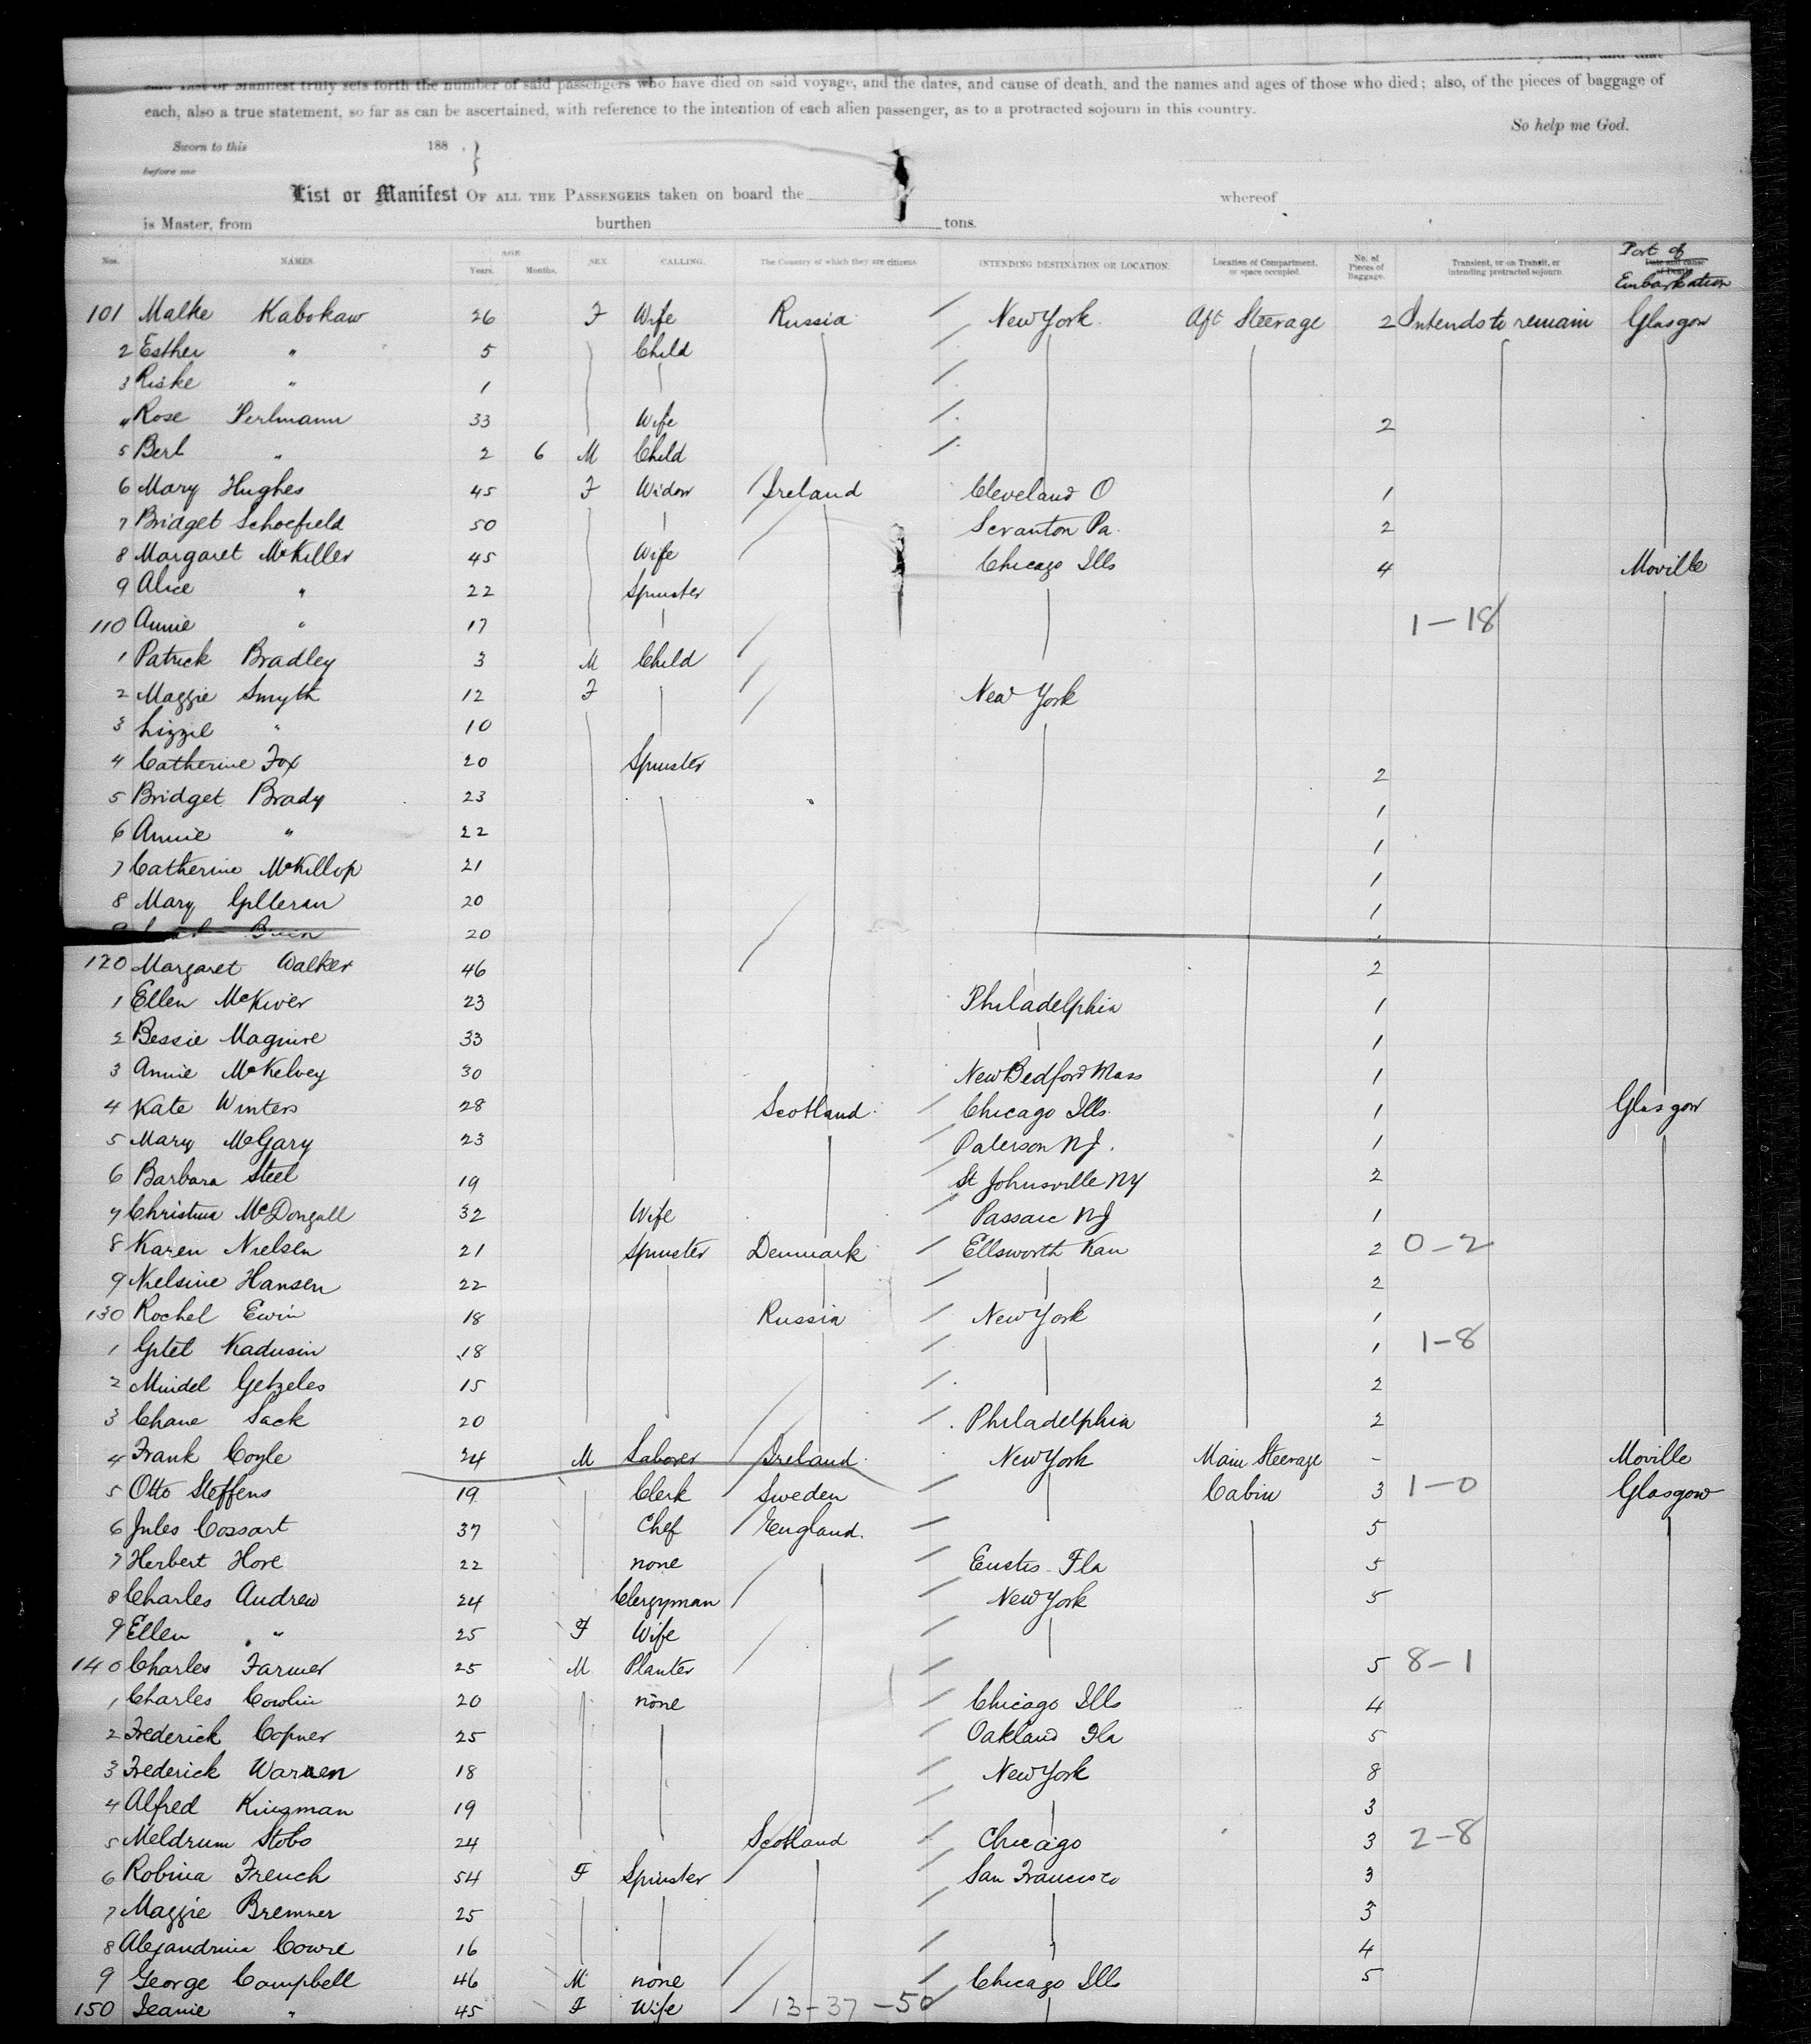 said List or Manifest truly sets forth the number of said passengers who have died on said voyage, and the dates, and cause of death, and the names and ages of those who died; also, of the pieces of baggage of
each, also a true statement, so far as can be ascertained, with reference to the intention of each alien passenger, as to a protracted sojourn in this country.
So help me God.
Sworn to this 188 .
before me
List or Manifest OF ALL THE PASSENGERS taken on board the whereof
is Master, from burthen tons.
Nos. NAMES. AGE Years. Months. SEX CALLING. The Country of which they are citizens. INTENDING DESTINATION OR LOCATION. Location of Compartment, or space occupied. No. of Pieces of Baggage. Transient, or on Transit, or intending protracted sojourn. Port of Embarkation
101 Malke Kabokaw 26 F Wife Russia / New York Aft Steerage 2 Intends to remain Glasgow
2 Esther " 5 Child /
3 Riske " 1 /
4 Rose Perlmann 33 Wife / 2
5 Berl " 2 6 M Child /
6 Mary Hughes 45 F Widow / Ireland Cleveland O 1
7 Bridget Schoefield 50 / Scranton Pa. 2
8 Margaret McKiller 45 Wife / Chicago Ills 4 Moville
9 Alice " 22 Spinster
110 Annie " 17 1-18
1 Patrick Bradley 3 M Child /
2 Maggie Smyth 12 F / New York
3 Lizzie " 10 /
4 Catherine Fox 20 Spinster 2
5 Bridget Brady 23 1
6 Annie " 22 1
7 Catherine McKillop 21 1
8 Mary Gilleran 20 1
20
120 Margaret Walker 46 / 2
1 Ellen McKiver 23 Philadelphia 1
2 Bessie Maguire 33 1
3 Annie McKelvey 30 New Bedford Mass 1
4 Kate Winters 28 Scotland / Chicago Ills. 1 Glasgow
5 Mary McGary 23 / Paterson NJ. 1
6 Barbara Steel 19 / St Johnsville NY 2
7 Christina McDongall 32 Wife / Passaic NJ 1
8 Karen Nielsen 21 Spinster Denmark / Ellsworth Kan 2 0-2
9 Nielsine Hansen 22 / 2
130 Rochel Ewin 18 Russia / New York 1
1 Gitel Kadusin 18 / 1 1-8
2 Mindel Getzeles 15 / 2
3 Chane Sack 20 / Philadelphia 2
4 Frank Coyle 24 M Laborer / Ireland New York Main Steerage - Moville
5 Otto Steffens 19 Clerk / Sweden / Cabin 3 1-0 Glasgow
6 Jules Cossart 37 Chef / England. / 5
7 Herbert Hore 22 none / Eustis Fla 5
8 Charles Andrew 24 Clergyman / / New York 5
9 Ellen " 25 F Wife / /
140 Charles Farmer 25 M Planter / / 5 8-1
1 Charles Cowlin 20 none / Chicago Ills 4
2 Frederick Copner 25 / Oakland Fla 5
3 Frederick Warren 18 / New York 8
4 Alfred Kingman 19 / 3
5 Meldrum Stobo 24 Scotland / Chicago 3 2-8
6 Robina French 54 F Spinster / / San Francisco 3
7 Maggie Bremner 25 / 3
8 Alexandrina Cowie 16 / 4
9 George Campbell 46 M none / / Chicago Ills 5
150 Jeanie " 45 F Wife / 13-37-50 /